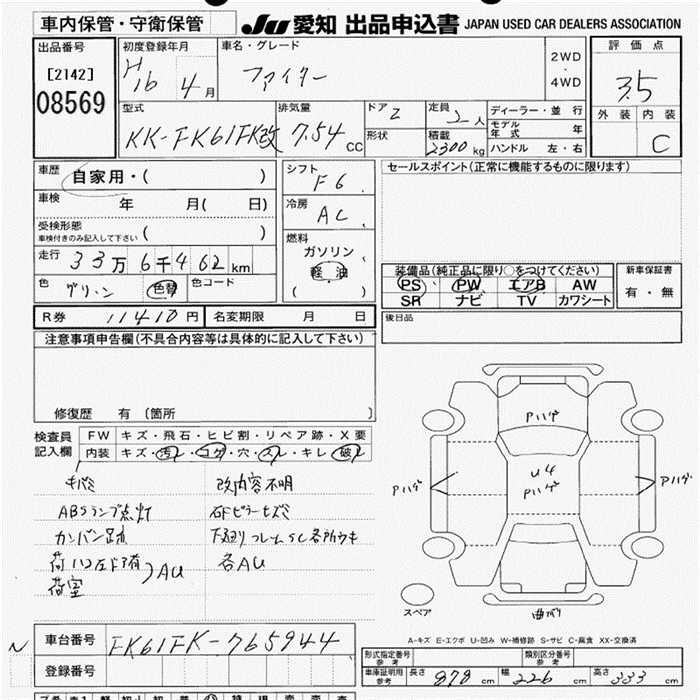 車内保管・守衛保管
JU 愛知 出品申込書 JAPAN USED CAR DEALERS ASSOCIATION
出品番号
[2142]
08569
初度登録年月
H
16 4月
車名・グレード
ファイター
2WD
・
4WD
評価点
3.5
外装 内装
C
型式
KK-FK61FK改
排気量
7.54 CC
ドア 2
形状
定員 2人
積載
2300 kg
ディーラー・並行
モデル年式 年
ハンドル 左・右
車歴
自家用・( )
車検 年 月( 日)
受検形態
車検付きのみ記入して下さい ( )
走行 33万6千462km
色 グリーン 色替 色コード
シフト
F6
冷房
AC
燃料
ガソリン
軽油
( )
セールスポイント(正常に機能するものに限ります)
装備品(純正品に限り○をつけてください)
PS PW エアB AW
SR ナビ TV カワシート
新車保証書
有・無
R券 11410円 名変期限 月 日
後日品
注意事項申告欄(不具合内容等は具体的に記入して下さい)
修復歴 有 〔箇所 〕
検査員
記入欄
FW キズ・飛石・ヒビ割・リペア跡・X要
内装 キズ・汚レ・コゲ・穴・スレ・キレ・破レ
キバミ
ABSランプ点灯
カンバン跡
荷室
AU
改内容不明
下廻りフレームSC各所ウキ
各AU
Pハゲ
U4
Pハゲ
Pハゲ
Pハゲ
スペア
曲がり
A-キズ E-エクボ U-凹み W-補修跡 S-サビ C-腐食 XX-交換済
N
車台番号 FK61FK-765944
登録番号
形式指定番号
参考
類別区分番号
参考
車庫証明用
参考
長さ 878 cm 幅 226 cm 高さ 333 cm